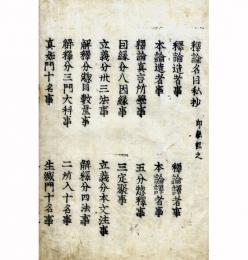 釋論名目私抄
釋論造者事
釋論譯者事
本論造者事
本論譯者事
回緣分八因緣事
五分惣釋事
釋論真言所學事
三定聚事
立義分卅三法事
立義分本文法事
解釋分惣目數量事
解釋分四法事
解釋分三門大科事
二所入十名事
真如門十名事
生滅門十名事